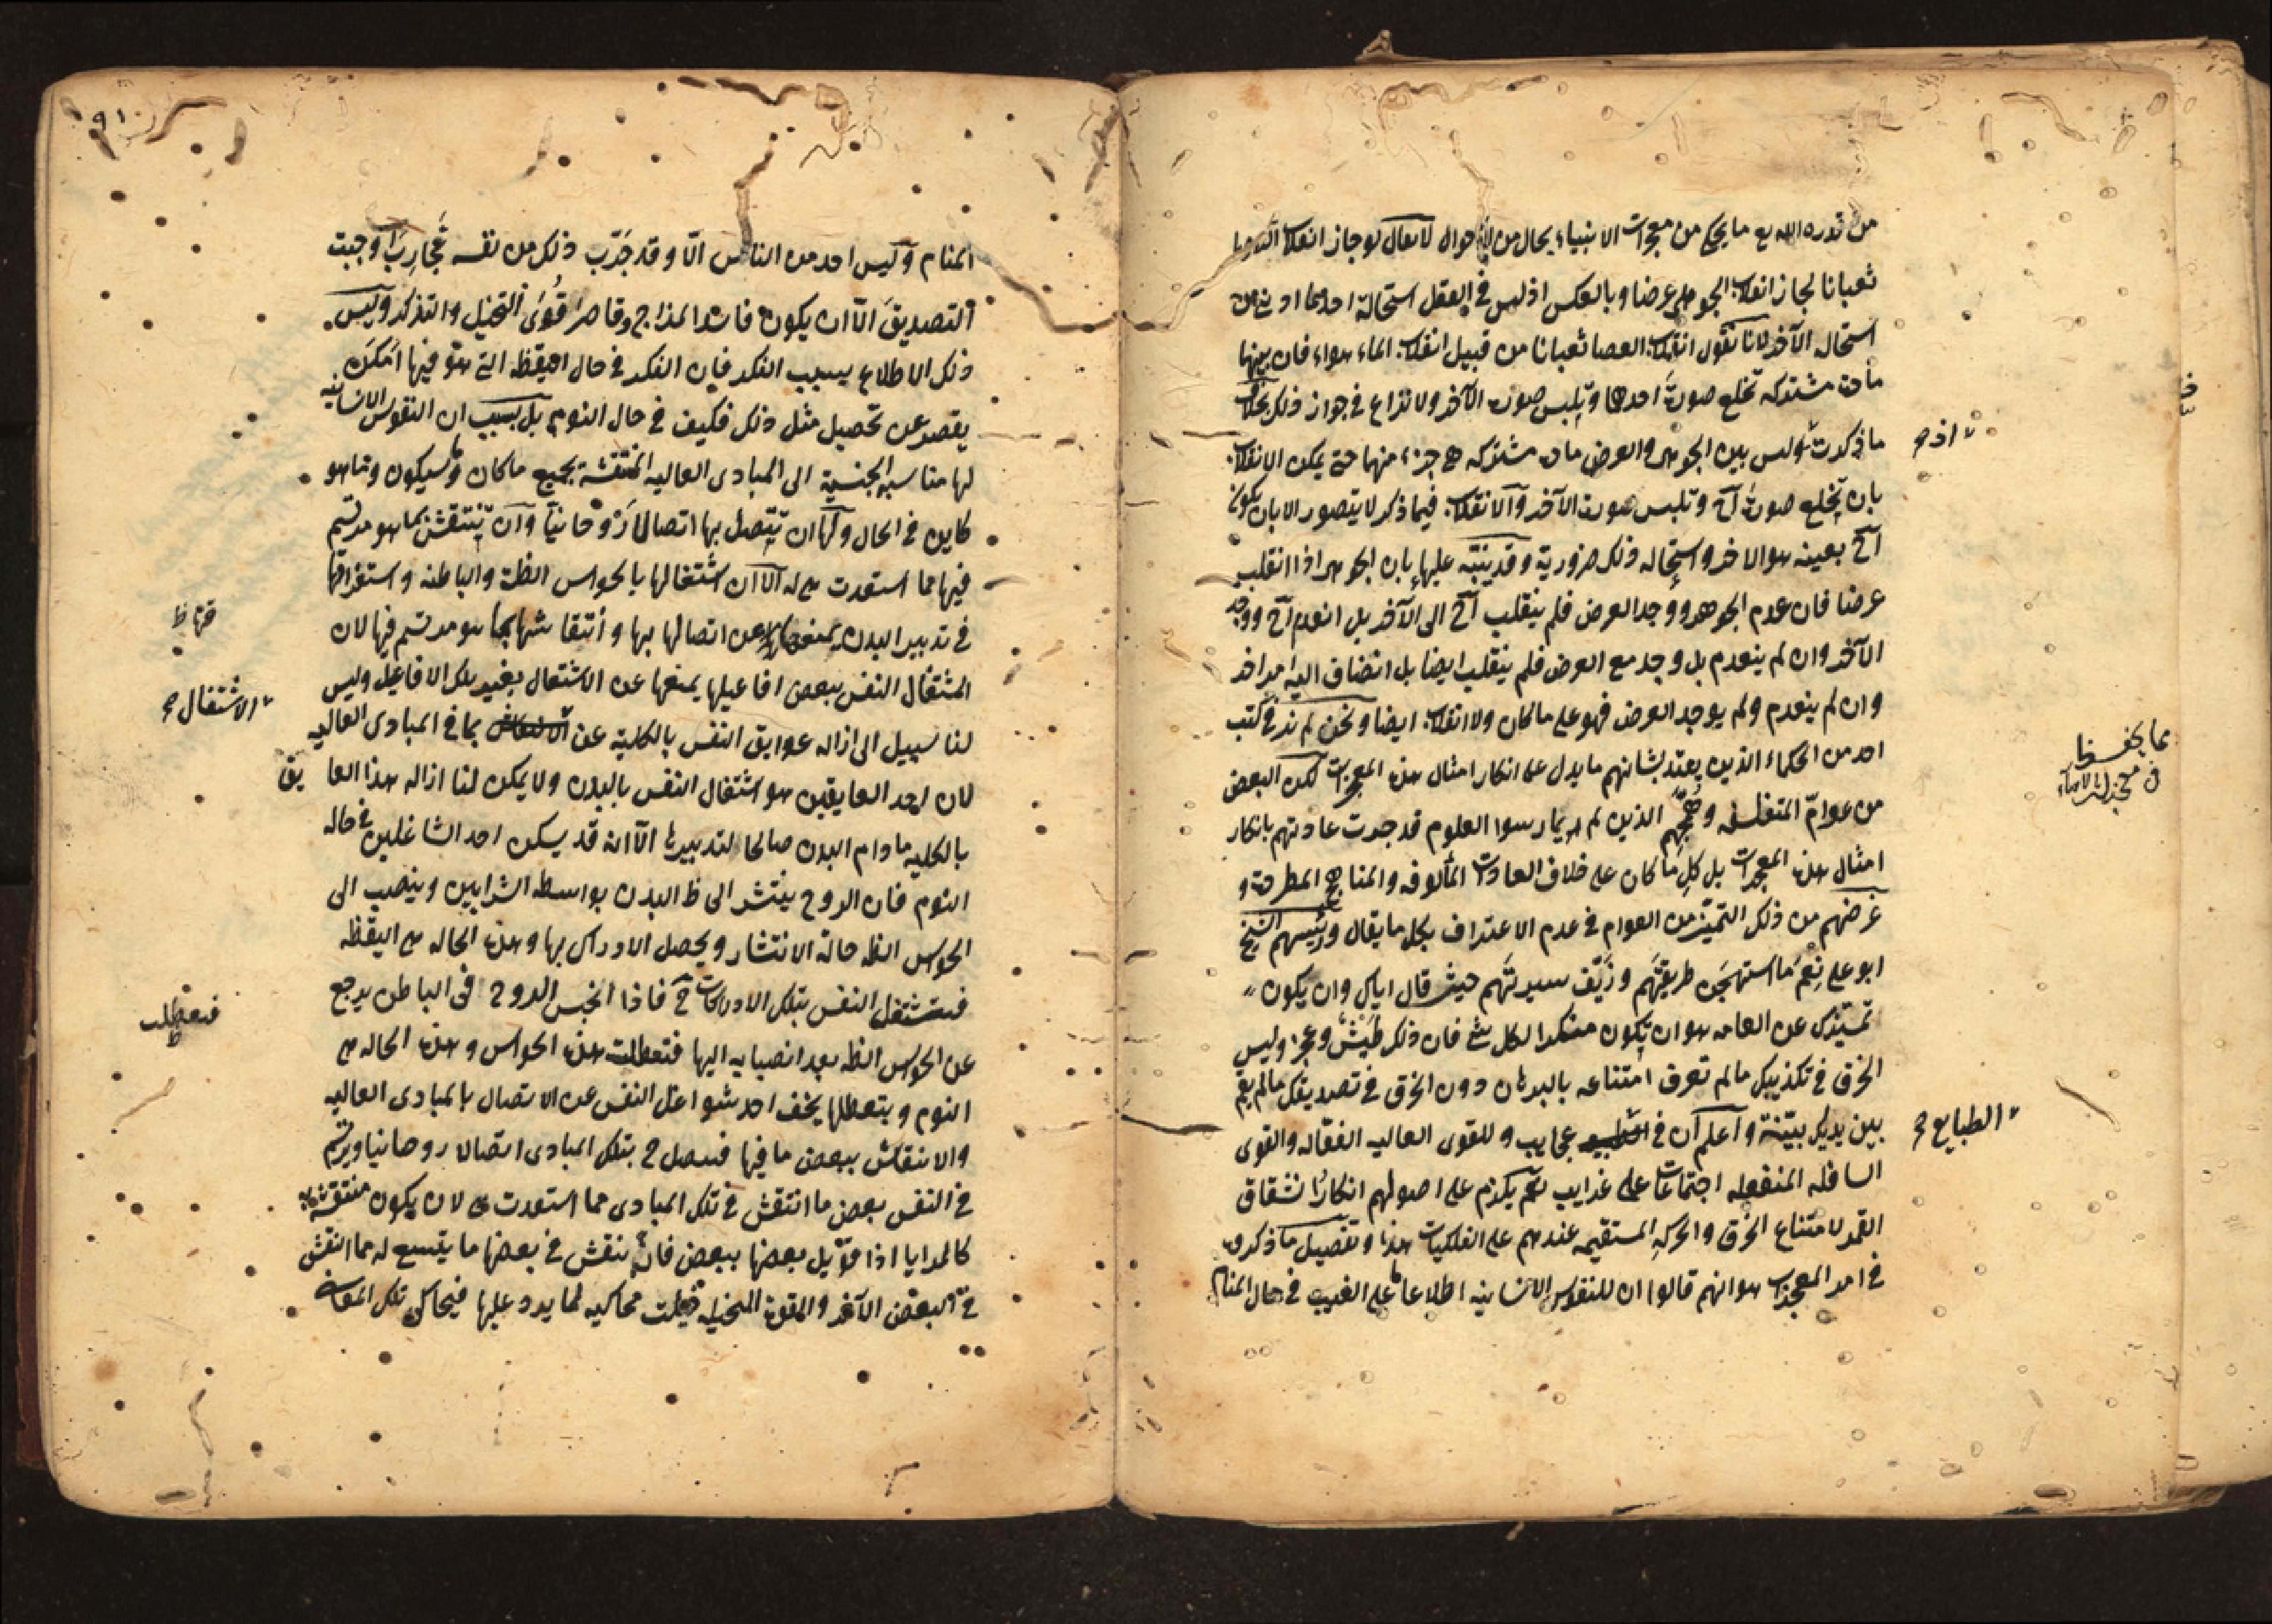 من قدره الله تع ما يحكى من معجزات الانبياء بحال من الاحوال لا يقال لو جاز انقلاب العصا
ثعبانا لجاز انقلاب الجوهر عرضا وبالعكس اذ ليس في العقل استحالة احدهما ادنى من
استحاله الآخر لانا نقول انقلاب العصا ثعبانا من قبيل انقلاب الماء هواء فان بينهما
مادة مشتركه تخلع صورة احدهما وتلبس صورة الآخر ولا نزاع في جواز ذلك بخلاف
ما ذكرت وليس بين الجوهر والعرض مادة مشتركه هي جزء منهما حتى يمكن الانقلاب
اذ صح
بان تخلع صورة آح وتلبس صورة الآخر والانقلاب فيما ذكر لا يتصور الا بان يكون
آح بعينه هو الاخر واستحاله ذلك ضرورية وقد ينبّه عليها بان الجوهر اذا انقلب
عرضا فان عدم الجوهر ووجد العرض فلم ينقلب آح الى الآخر بل انعدم آح ووجد
الآخر وان لم ينعدم بل وجد مع العرض فلم ينقلب ايضا بل انضاف اليه امر اخر
وان لم ينعدم ولم يوجد العرض فهو على ما كان ولا انقلاب ايضا ونحن لم نر في كتب
احد من الحكماء الذين يعتد بشانهم ما يدل على انكار امثال هذه المعجزات لكن البعض
من عوامّ المتفلسفه وهمجهم الذين لم يمارسوا العلوم قد جرت عادتهم بانكار
امثال هذه المعجزات بل كل ما كان على خلاف العادات المألوفه والمناهج المطرحة و
غرضهم من ذلك التميّز من العوام في عدم الاعتراف بكل ما يقال ورئيسهم الشيخ
ابو على نِعْمَ ما استهجَن طريقتَهم وزَيّف سيرتَهم حيث قال اياك وان يكون
تميّزك عن العامه هو ان تكون منكرا لكل شئ فان ذلك طَيش وعجز وليس
الخرق في تكذيبك ما لم تعرف امتناعه بالبرهان دون الخرق في تصديقك ما لم يقم
بين يديك بيّنة واعلم ان في عجايب وللقوى العاليه الفعّاله والقوى
الطبايع صح
السافله المنفعله اجتماعات على غرايب نعم يلزم على اصولهم انكار انشقاق
القمر لامتناع الخرق والحركه المستقيمه عندهم على الفلكيات هذا وتفصيل ما ذكروه
في امر المعجزات هو انهم قالوا ان للنفوس الانسانيه اطلاعا على الغيب في حال المنام
٩١
المنام وليس احد من الناس الّا وقد جَرّب ذلك من نفسه تَجارِبَ اوجبت
التصديقَ الّا ان يكون فاسد المزاج وقاصرَ قُوَى التخيل والتذكر وليس
ذلك الاطلاع بسبب الفكر فان الفكر في حال اليقظه التي هو فيها امكن
يقصر عن تحصيل مثل ذلك فكيف في حال النوم بل بسبب ان النفوس الانسانيه
لها مناسبه الجنسية الى المبادى العاليه المنتقشة بجميع ما كان وما سيكون وما هو
كاين في الحال ولها ان تتصل بها اتصالا رُوحانيّا وان تنتقش بما هو مرتسم
فيها مما استعدت هي له الّا ان اشتغالها بالحواس الظة والباطنه واستغراقها
في تدبير البدن عن اتصالها بها وانتقاشها بما هو مرتسم فيها لان
اشتغال النفس ببعض افاعيلها يمنعها عن الاشتغال بغير تلك الافاعيل وليس
لنا سبيل الى ازاله عوايق النفس بالكلية عن بما في المبادى العاليه
الاشتغال صح
لان احد العايقين هو اشتغال النفس بالبدن ولا يمكن لنا ازاله هذا العا يق
بالكليه ما دام البدن صالحا لتدبيرها الّا انه قد يسكن احد الشاغلين في حاله
النوم فان الروح ينتشر الى ظ البدن بواسطه الشرايين وينصب الى
الحواس الظه حالة الانتشار ويحصل الادراك بها وهذه الحاله هي اليقظه
فتشتغل النفس بتلك الادراكات ح فاذا انخنس الروح في الباطن يرجع
عن الحواس الظه بعد انصبابه اليها فتعطلت هذه الحواس وهذه الحاله هي
فتعطلت ظ
النوم وبتعطلها يخف احد شواغل النفس عن الاتصال بالمبادى العاليه
والانتقاش ببعض ما فيها فتتصل ح بتلك المبادى اتصالا روحانيا ويرتسم
في النفس بعض ما انتقش في تلك المبادى مما استعدت هي لان يكون منتقشة به
كالمرايا اذا قوبل بعضها ببعض فانه ينتقش في بعضها ما يتسع له مما انتقش
في البعض الآخر والقوة المتخيله جعلت محاكيه لما يرد عليها فيحاكى تلك المعانى